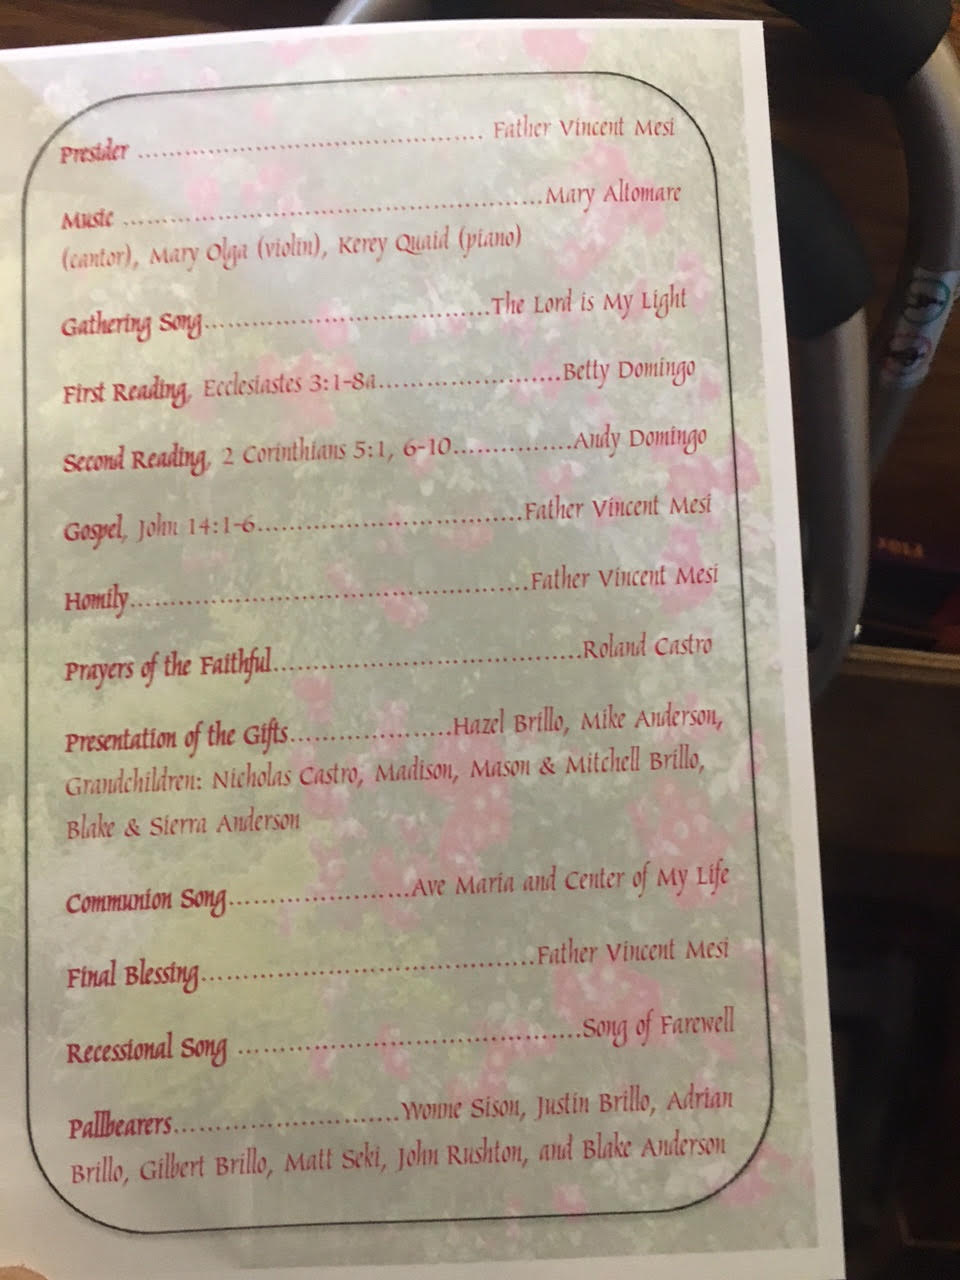 Presider .......................................... Father Vincent Mesi
Music ..................................................Mary Altomare
(cantor), Mary Olga (violin), Kerey Quaid (piano)
Gathering Song..................................The Lord is My Light
First Reading, Ecclesiastes 3:1-8a......................Betty Domingo
Second Reading, 2 Corinthians 5:1, 6-10..............Andy Domingo
Gospel, John 14:1-6...............................Father Vincent Mesi
Homily...............................................Father Vincent Mesi
Prayers of the Faithful.....................................Roland Castro
Presentation of the Gifts...................Hazel Brillo, Mike Anderson,
Grandchildren: Nicholas Castro, Madison, Mason & Mitchell Brillo,
Blake & Sierra Anderson
Communion Song......................Ave Maria and Center of My Life
Final Blessing.......................................Father Vincent Mesi
Recessional Song ........................................Song of Farewell
Pallbearers..........................Yvonne Sison, Justin Brillo, Adrian
Brillo, Gilbert Brillo, Matt Seki, John Rushton, and Blake Anderson